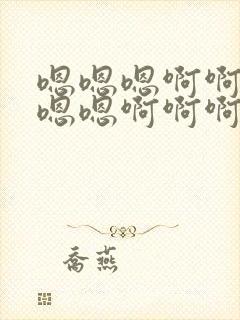 嗯嗯嗯啊啊
嗯嗯啊啊啊
喬燕